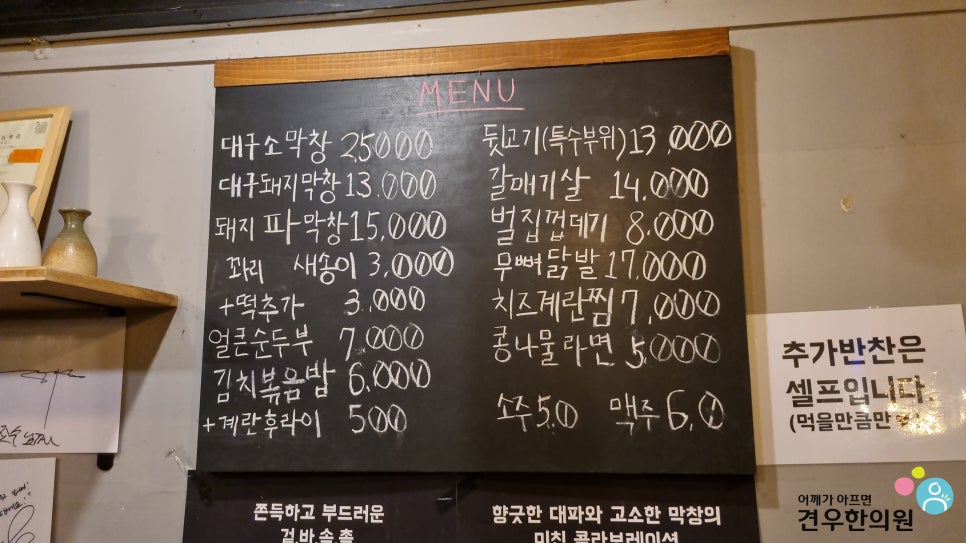 MENU
대구소막창 25000
대구돼지막창 13.000
돼지 파막창 15,000
꽈리 새송이 3,000
+떡추가 3.000
얼큰순두부 7,000
김치볶음밥 6,000
+계란후라이 500
뒷고기(특수부위) 13,000
갈매기살 14.000
벌집껍데기 8.000
무뼈닭발 17.000
치즈계란찜 7,000
콩나물라면 5,000
소주 5.0 맥주 6.0
추가반찬은
셀프입니다.
(먹을만큼만
쫀득하고 부드러운
겉.바.속.촉
향긋한 대파와 고소한 막창의
미친 콜라보레이션
어깨가 아프면
견우한의원